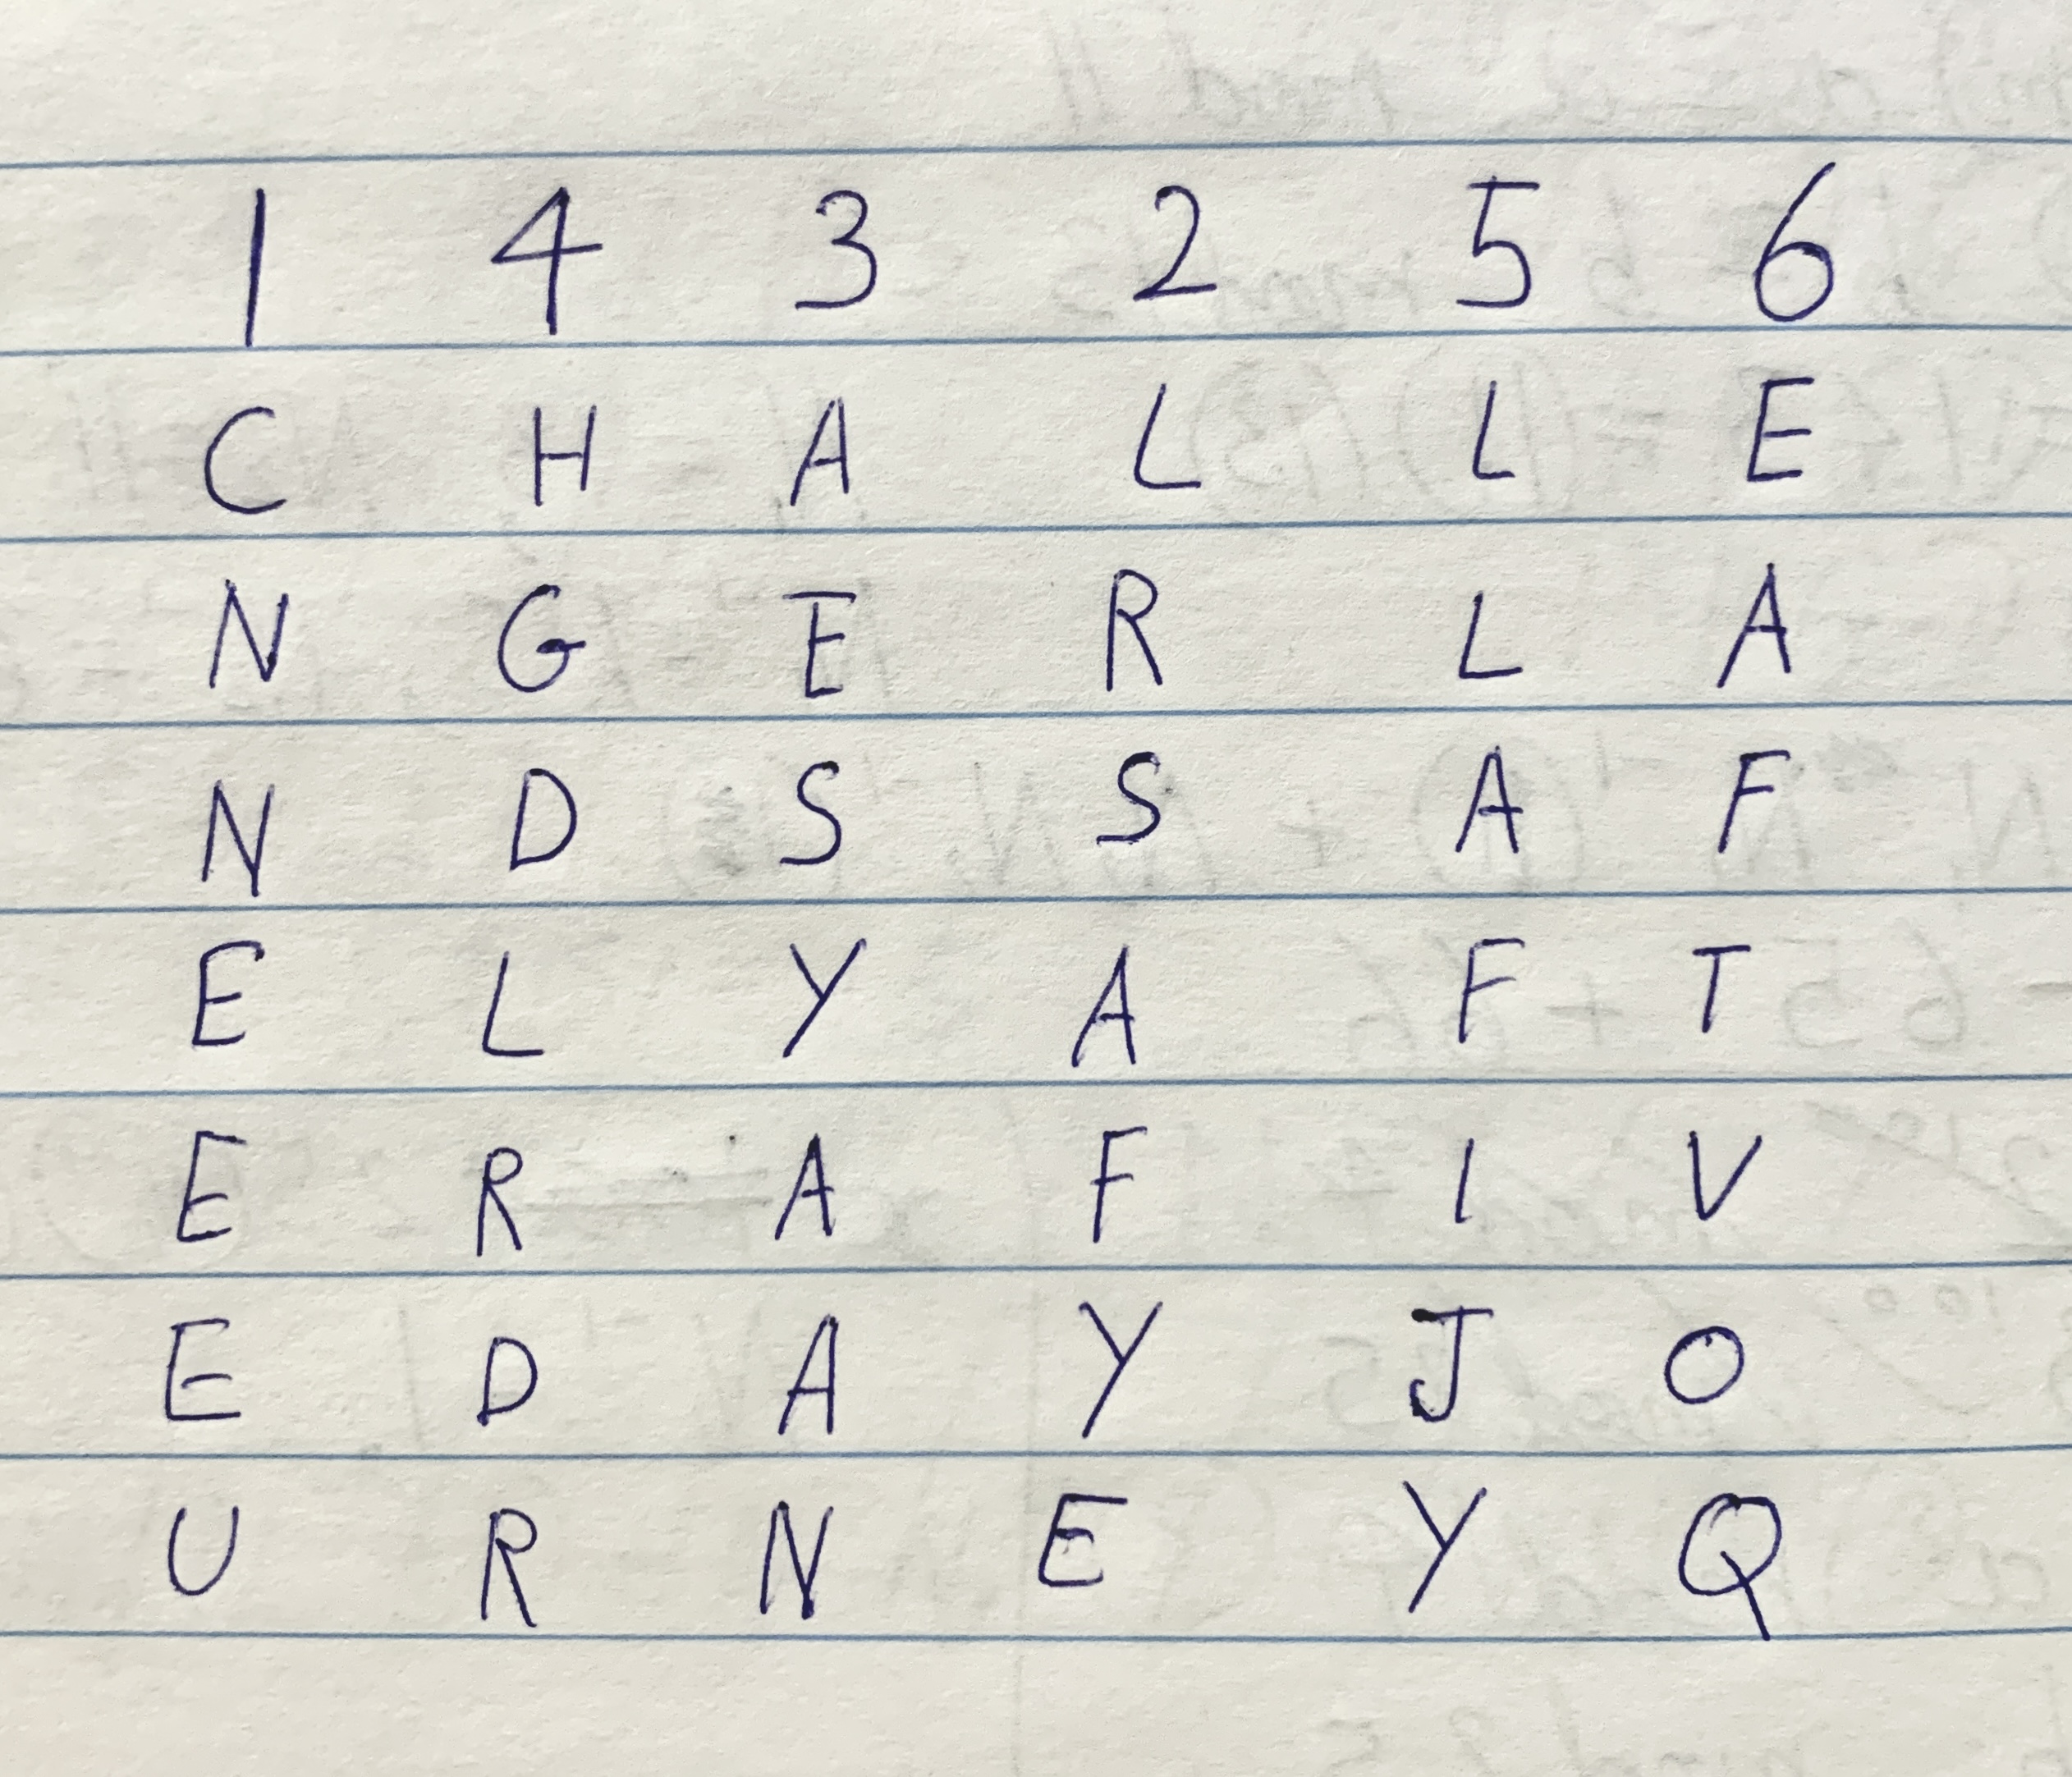 1 4 3 2 5 6
C H A L L E
N G E R L A
N D S S A F
E L Y A F T
E R A F I V
E D A Y J O
U R N E Y Q